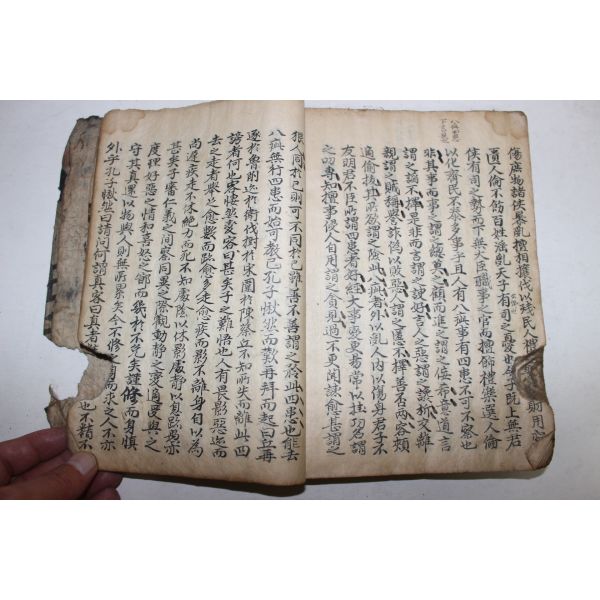 傷庶物諸侯暴亂擅相攘伐以殘民人禮財用
匱人倫不飭百姓淫亂天子有司之憂也今子旣上無君
侯有司之勢而下無大臣職事之官而擅飾禮樂選人倫
以化齊民不泰多事乎且人有八疵事有四患不可不察也
非其事而事之謂之摠莫之顧而進之謂之佞希意道言
謂之諂不擇是非而言謂之諛好言人之惡謂之讒析交離
親謂之賊稱譽詐僞以敗惡人謂之慝不擇善否兩容頰
適偷拔其所欲謂之險此八疵者外以亂人內以傷身君子不
友明君不臣所謂四患者好經大事變更易常以挂功名謂
之叨專知擅事侵人自用謂之貪見過不更聞諫愈甚謂之
狠人同於己則可不同於己雖善不善謂之矜此四患也能去
八疵無行四患而始可教已孔子愀然而歎再拜而起曰丘再
逐於魯削迹於衛伐樹於宋圍於陳蔡丘不知所失而離此四
謗者何也客悽然變容曰甚矣子之難悟也人有畏影惡迹而
去之走者擧足愈數而跡愈多走愈疾而影不離身自以爲
尚遲疾走不休絶力而死不知處陰以休影處靜以息跡愚亦
甚矣子審仁義之間察同異之際觀動靜之變適受與之
度理好惡之情和喜怒之節而幾於不免矣謹修而身愼
守其眞還以物與人則無所累矣今不修之身而求之人不亦
外乎孔子愀然曰請問何謂眞客曰眞者
也不精不